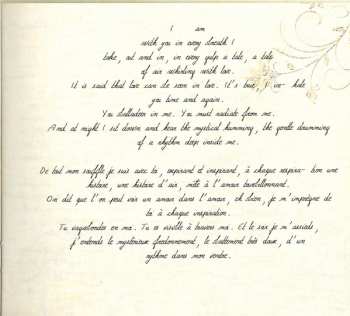 I am
with you in every breath I
take, out and in, in every gulp a tale, a tale
of air whirling with love.
It is said that love can be seen in love. It's true, I in- hale
you time and again.
You hallucen in me. You must radiate from me.
And at night I sit down and hear the mystical humming, the gentle drumming
of a rhythm deep inside me.
De tout mon souffle je suis avec toi, expirant et inspirant, à chaque respira- tion une
histoire, une histoire d'air, mêlé à l'amour tourbillonnant.
On dit que l'on peut voir un amour dans l'amour, oh bien, je m'imprègne de
toi à chaque inspiration.
Tu vagabondes en moi. Tu es visible à travers moi. Et le soir je m'assieds,
j'entends le mystérieux fredonnement, le battement très doux, d'un
rythme dans mon ventre.